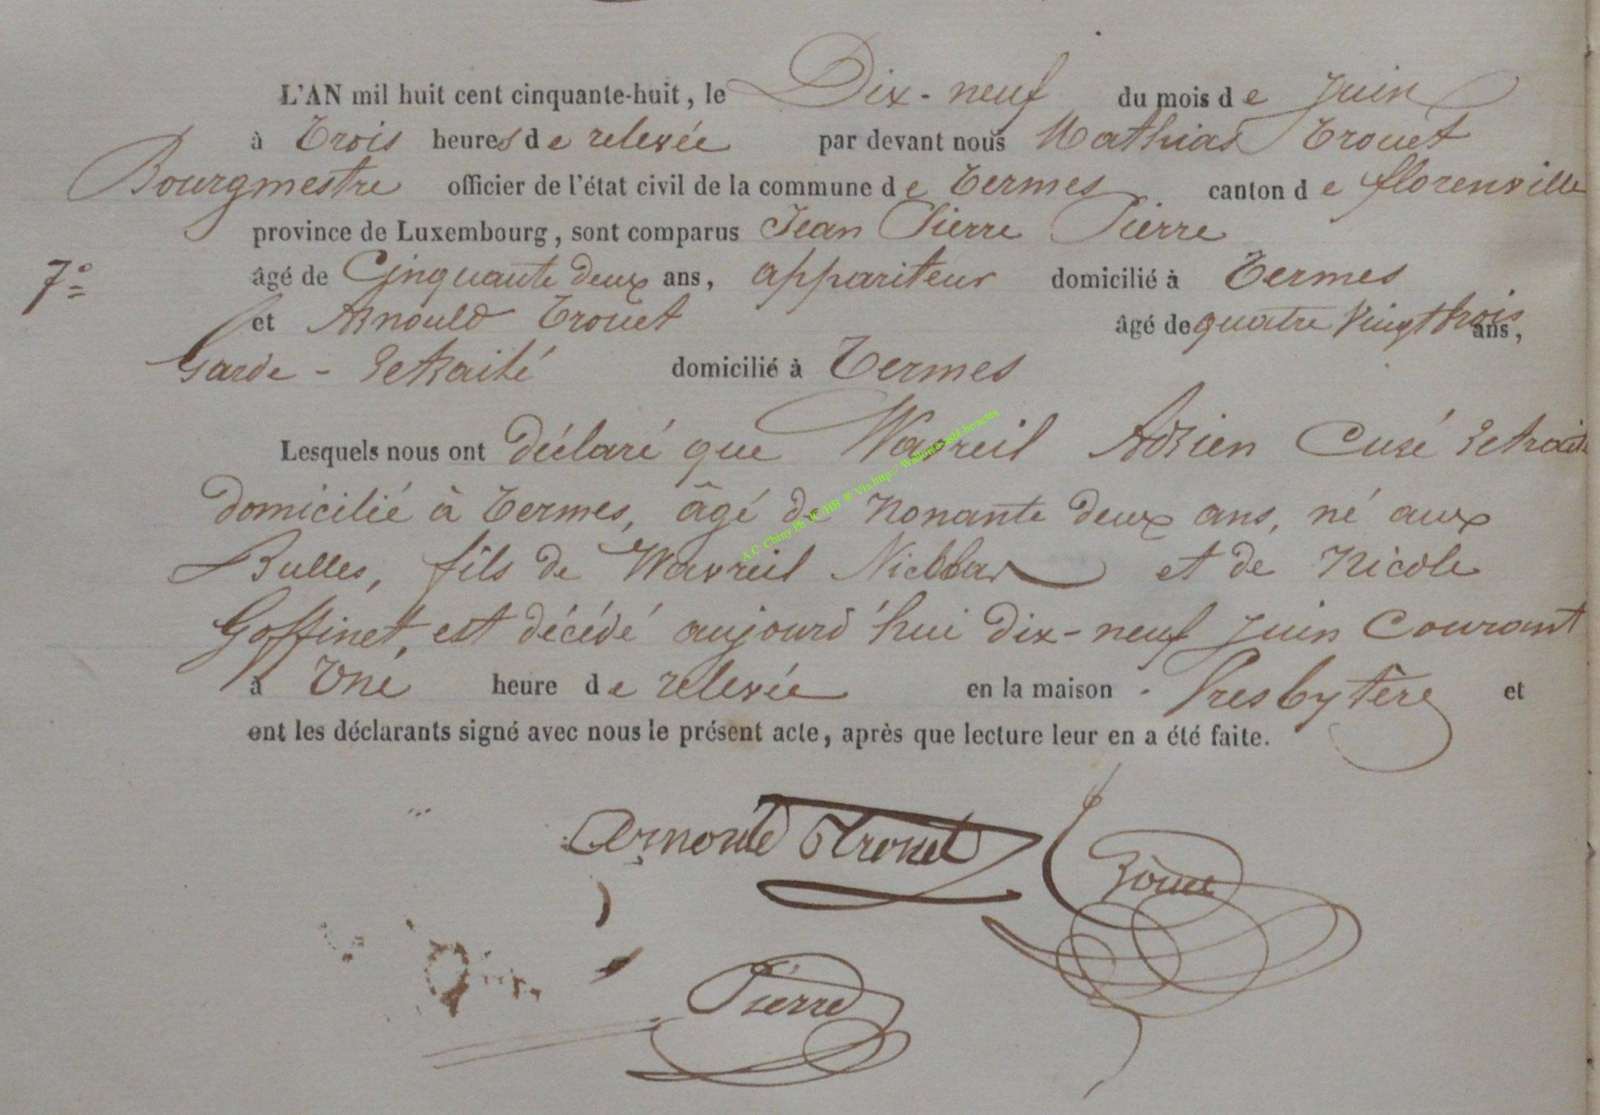 L'AN mil huit cent cinquante-huit, le Dix-neuf du mois de Juin
à Trois heures de relevée par devant nous Mathias Trouet
Bourgmestre officier de l'état civil de la commune de Termes canton de florenville
province de Luxembourg, sont comparus Jean Pierre Pierre
7° âgé de Cinquante deux ans, appariteur domicilié à Termes
et Arnould Trouet âgé de quatre Vingt trois ans,
Garde-Retraité domicilié à Termes
Lesquels nous ont déclaré que Wavreil Adrien Curé Retraité
domicilié à Termes, âgé de Nonante deux ans, né aux
Bulles, fils de Wavreil Nicolas et de Nicole
Goffinet, est décédé aujourd'hui dix-neuf Juin Courant
à Une heure de relevée en la maison - Presbytère et
ont les déclarants signé avec nous le présent acte, après que lecture leur en a été faite.
Arnould Trouet
Trouet
Pierre